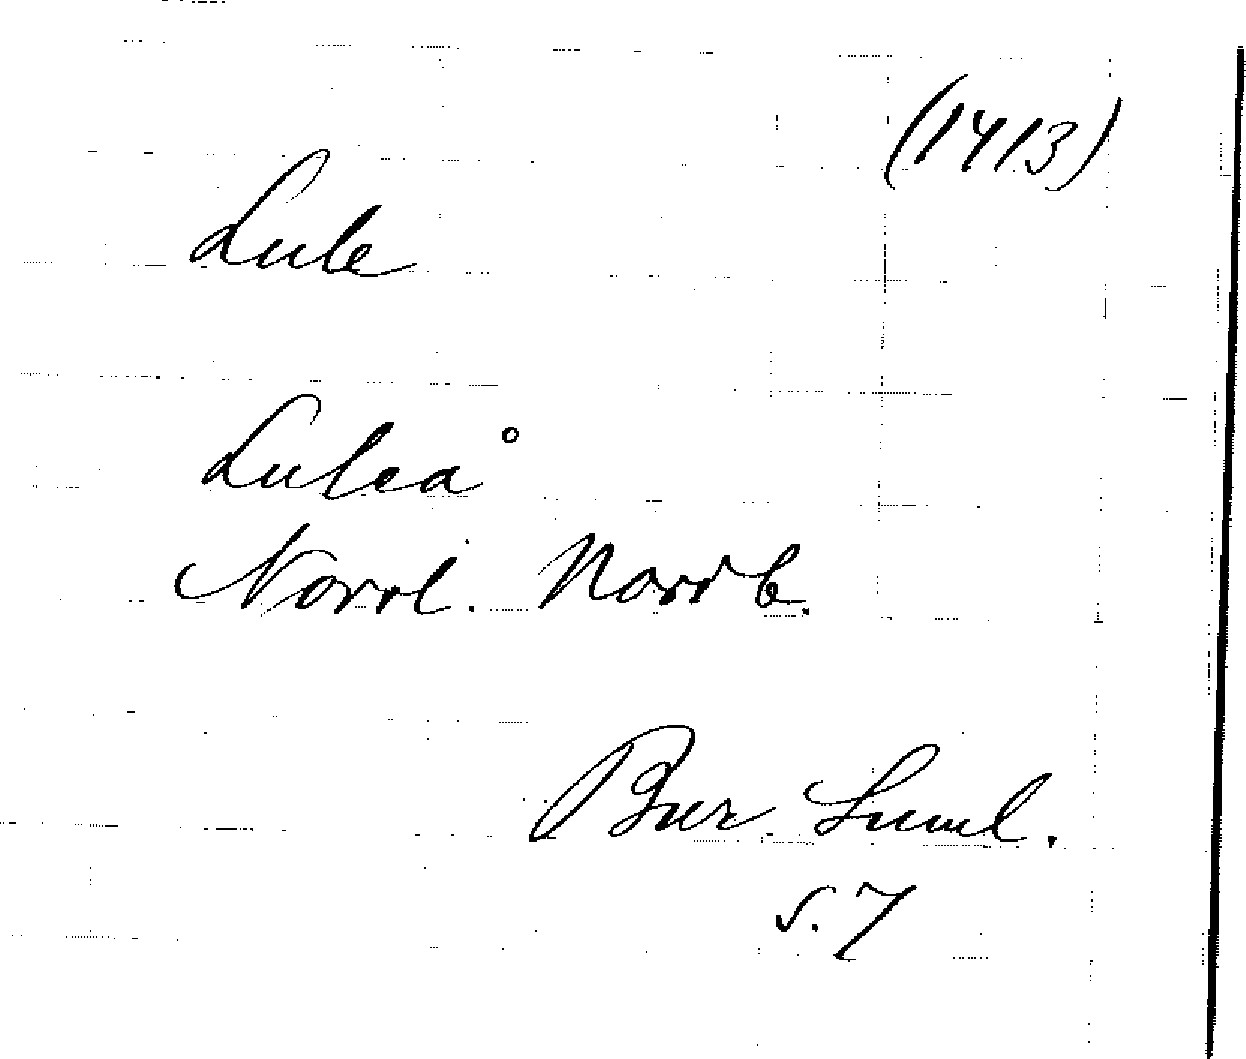 (1413)
Lule
Luleå
Norrl. Norrb.
Bur. Suml.
s. 7